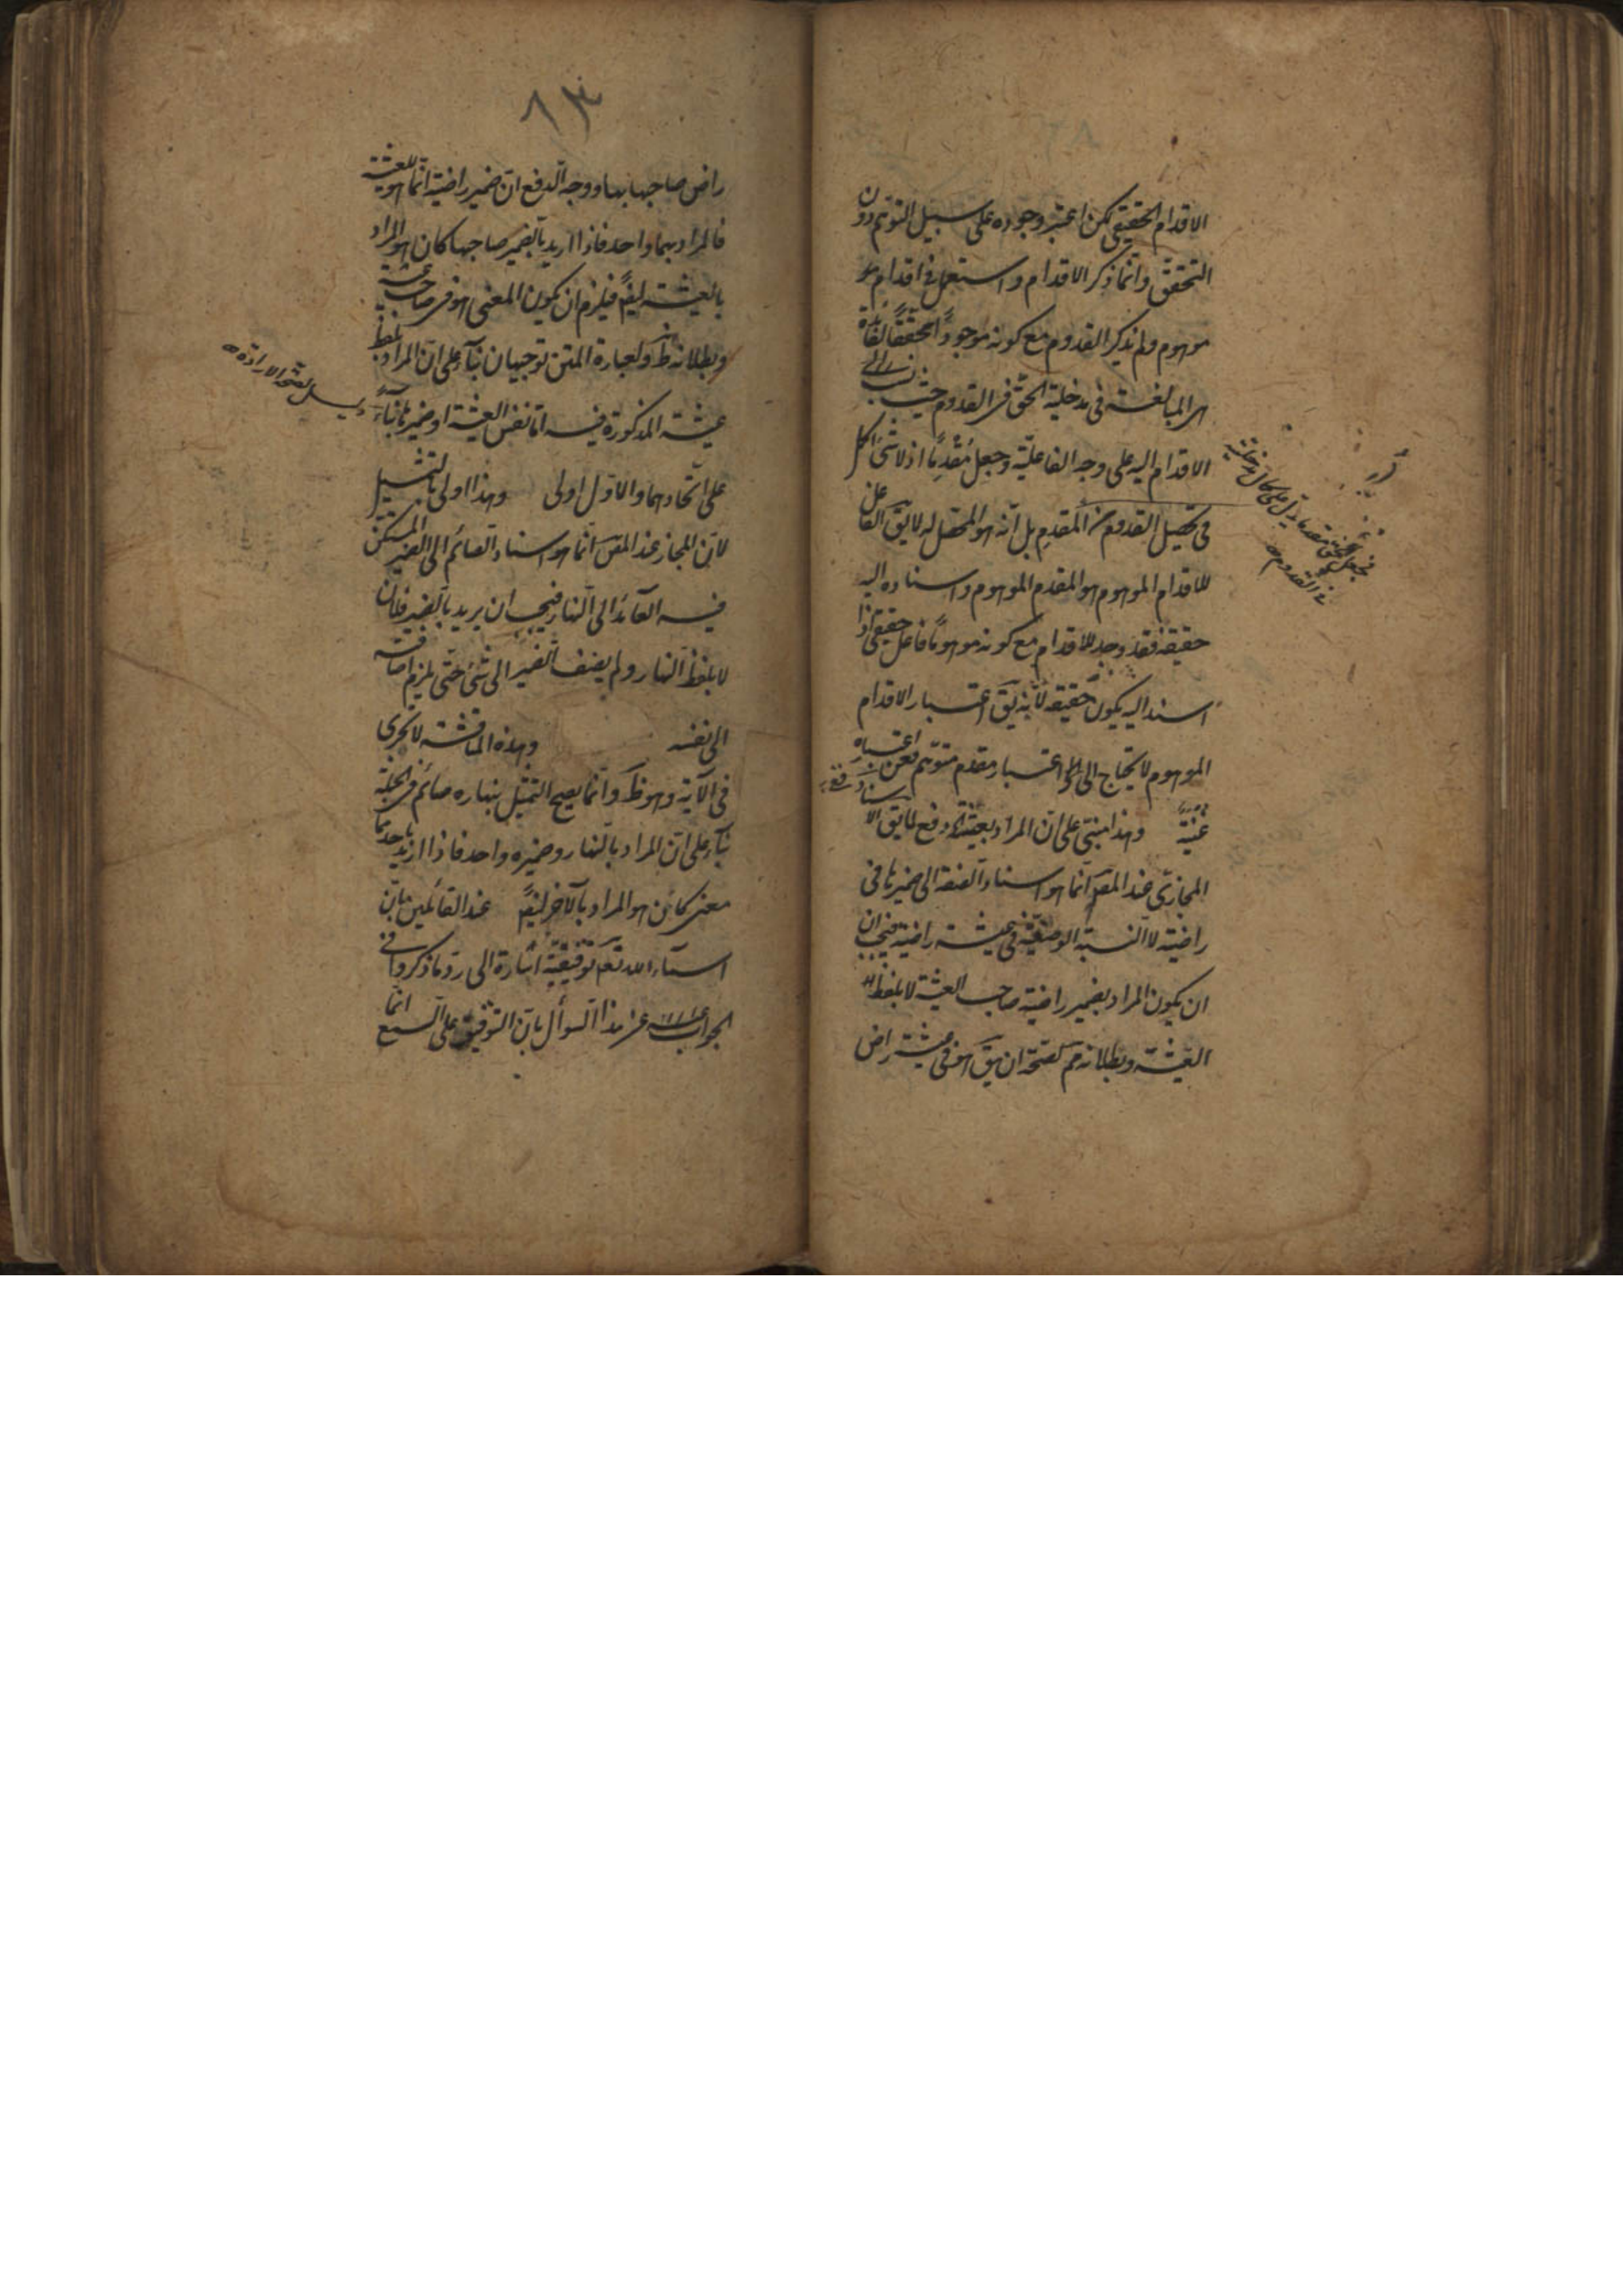 الاقدام الحقيقى لكن اعتبر وجوده على سبيل التوهم دون
التحقق وانما ذكر الاقدام واستعمل فى اقدام
موهوم ولم يذكر القدوم مع كونه موجوداً محققاً لفائدة
هى المبالغة فى مدخلية الحق فى القدوم حيث نسب
الاقدام اليه على وجه الفاعلية وجعل مُقْدِمًا اذ لا شئ اكمل
فى تحصيل القدوم من المقدم بل انه هو المحصل له لا يق الفاعل
للاقدام الموهوم هو المقدم الموهوم واسناده اليه
حقيقة فقد وجد للاقدام مع كونه موهوماً فاعل حقيقى اذا
اسند اليه يكون حقيقة لانه يق اعتبار الاقدام
الموهوم لا يحتاج الى اعتبار مقدم متوهم فعن اعتباره
غنية وهذا مبنى على ان المراد بعيشة دفع لما يق الاسناد
المجازى عند المص انما هو اسناد الصفة الى ضميرها فى
راضية لا النسبة الوصفية فى عيشة راضية فيجب ان
ان يكون المراد بضمير راضية صاحب العيشة لا بلفظ
العيشة وبطلانه ثم لصحة ان يق هو فى عيشة راض
فجعل الحق مقدما يدل على كمال مدخليته
فى القدوم
٨٣
راض صاحبها بها ووجه الدفع ان ضمير راضية انما هو للعيشة
فالمراد بهما واحد فاذا اريد بالضمير صاحبها كان هو المراد
بالعيشة ايضً فيلزم ان يكون المعنى هو فى صاحب عيشة
وبطلانه ظ ولعبارة المتن توجيهان بناء على ان المراد بلفظ
عيشة المذكورة فيه اما نفس العيشة او ضميرها بناءً
على اتحادهما والاول اولى وهذا اولى بالتمثيل
لان المجاز عند المص انما هو اسناد الصائم الى الضمير المستكن
فيه العائد الى النهار فيجب ان يريد بالضمير فلان
لا بلفظ النهار ولم يضف الضمير الى شئ حتى يلزم اضافته
الى نفسه وهذه المناقشة لا تجرى
فى الآية وهو ظ وانما يصح التمثيل بنهاره صائم فى الجملة
بناء على ان المراد بالنهار وضميره واحد فاذا اريد باحدهما
معنى كان هو المراد بالآخر ايضً عند القائلين بان
اسماء الله تع توقيفية اشارة الى رد ما ذكروا فى
الجواب عن هذا السؤال بان التوقيف على السمع انما